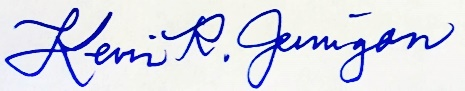 Kevin R. Jernigan